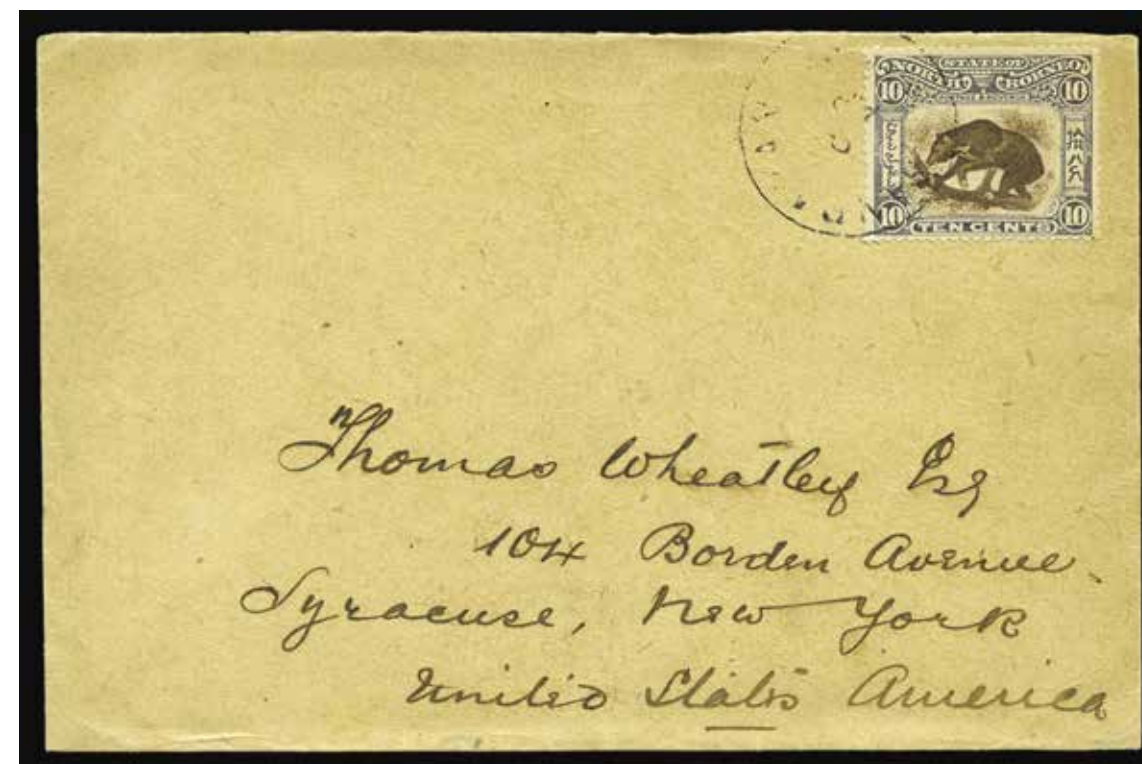 STATE OF
NORTH BORNEO
10 10
10 TEN CENTS 10
Thomas Wheatley Esq
104 Borden Avenue
Syracuse, New York
United States America